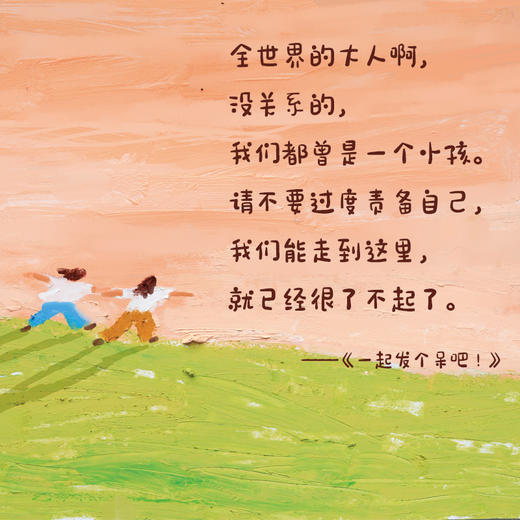 全世界的大人啊,
没关系的,
我们都曾是一个小孩。
请不要过度责备自己,
我们能走到这里,
就已经很了不起了。
——《一起发个呆吧！》